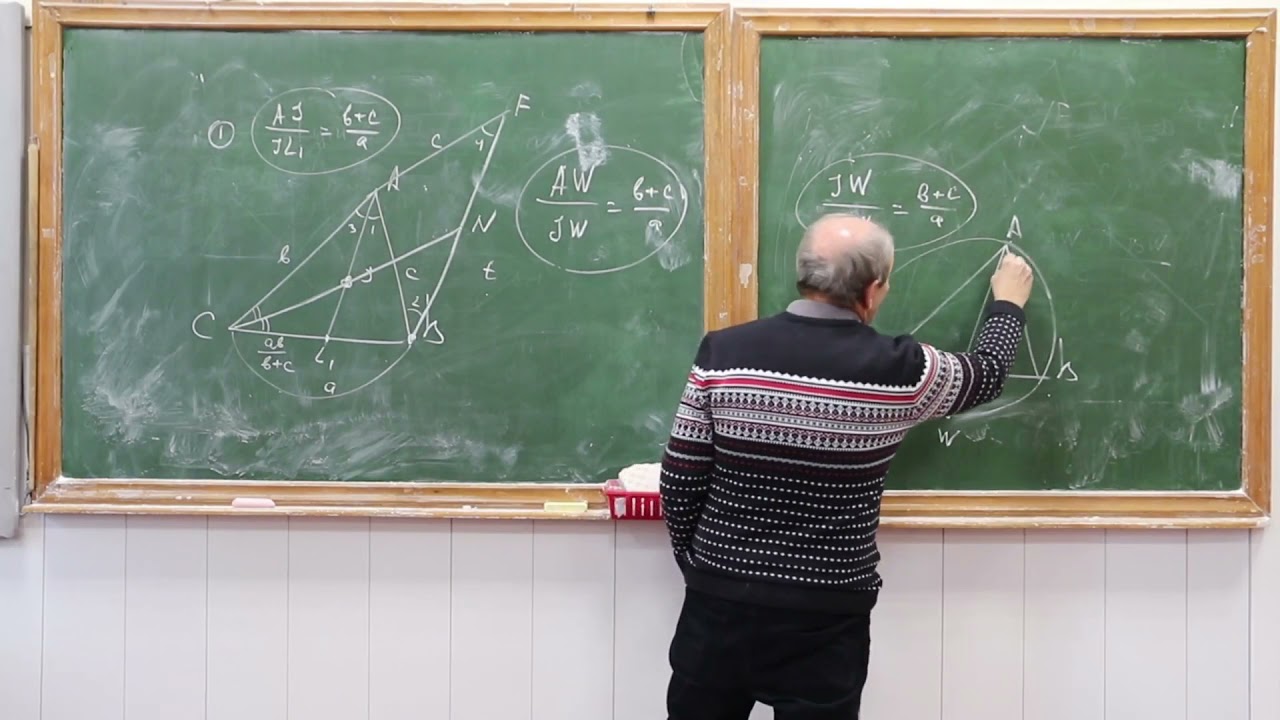 ① AJ/JL₁ = b+c/a
F
c
4
A
3 1
b
J
c
N
t
2
C
B
ab/b+c
L₁
a
AW/JW = b+c/a
JW
= b+c/a
A
B
W